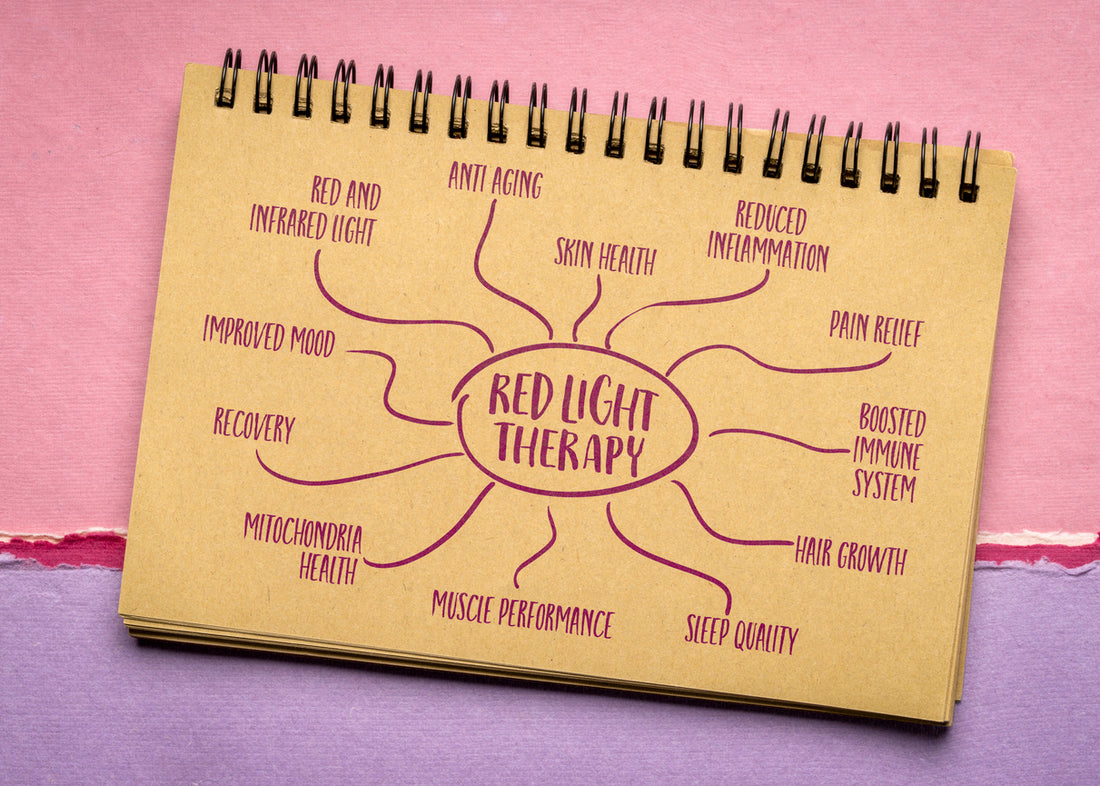 ANTI AGING
RED AND
INFRARED LIGHT
REDUCED
INFLAMMATION
SKIN HEALTH
IMPROVED MOOD
PAIN RELIEF
RED LIGHT
THERAPY
RECOVERY
BOOSTED
IMMUNE
SYSTEM
MITOCHONDRIA
HEALTH
HAIR GROWTH
MUSCLE PERFORMANCE
SLEEP QUALITY